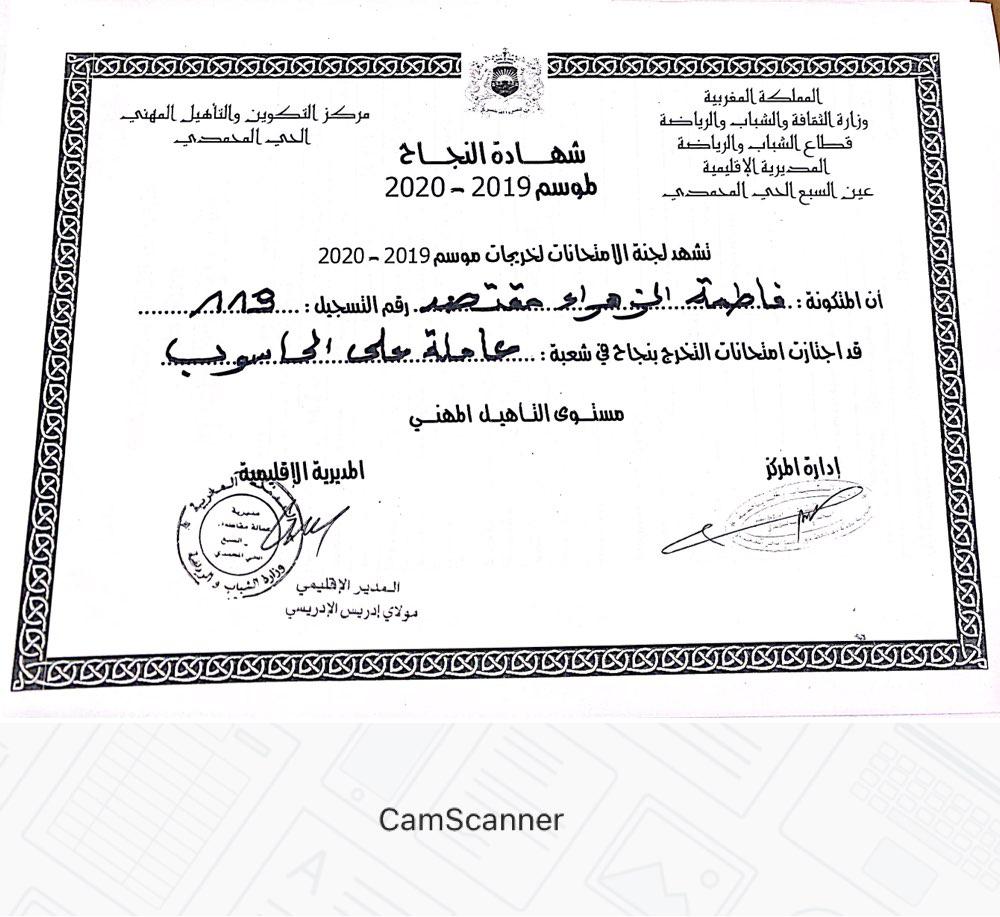 المملكة المغربية
وزارة الثقافة والشباب والرياضة
قطاع الشباب والرياضة
المديرية الإقليمية
عين السبع الحي المحمدي
مركز التكوين والتأهيل المهني
الحي المحمدي
شهادة النجاح
لموسم 2019 - 2020
تشهد لجنة الامتحانات لخريجات موسم 2019 - 2020
أن المتكونة : فاطمة الزهراء مقتصد رقم التسجيل : 119
قد اجتازت امتحانات التخرج بنجاح في شعبة : عاملة على الحاسوب
مستوى التأهيل المهني
إدارة المركز
المديرية الإقليمية
المملكة المغربية
مديرية
عمالة مقاطعات
السبع
الحي المحمدي
وزارة الشباب و الرياضة
المدير الإقليمي
مولاي إدريس الإدريسي
CamScanner